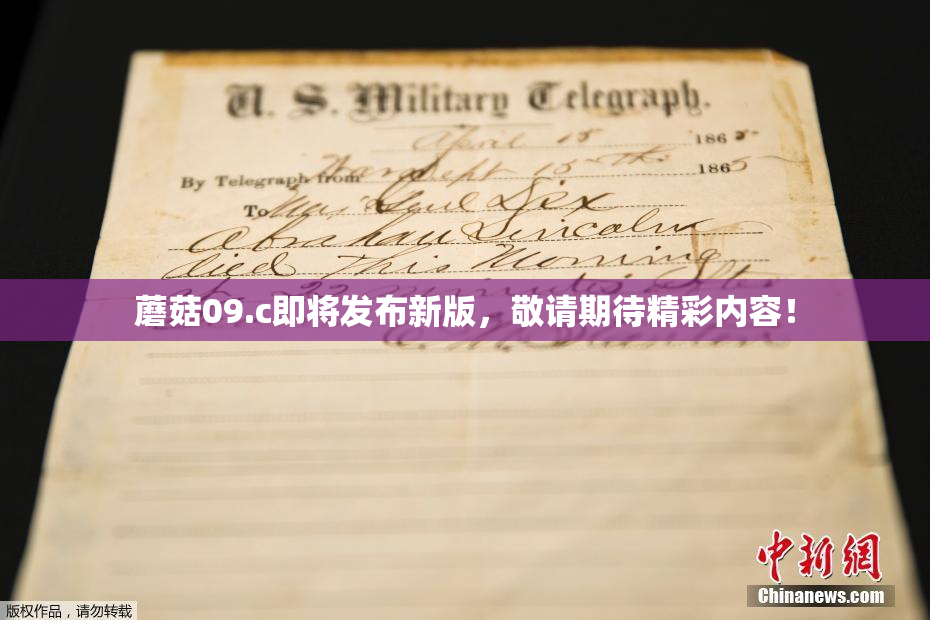 U. S. Military Telegraph.
April 15 1865
By Telegraph from War Dept 15th 1865
To Maj Genl Dix
Abraham Lincoln
died This Morning
22 minutes after
蘑菇09.c即将发布新版，敬请期待精彩内容！
中新网
Chinanews.com
版权作品，请勿转载